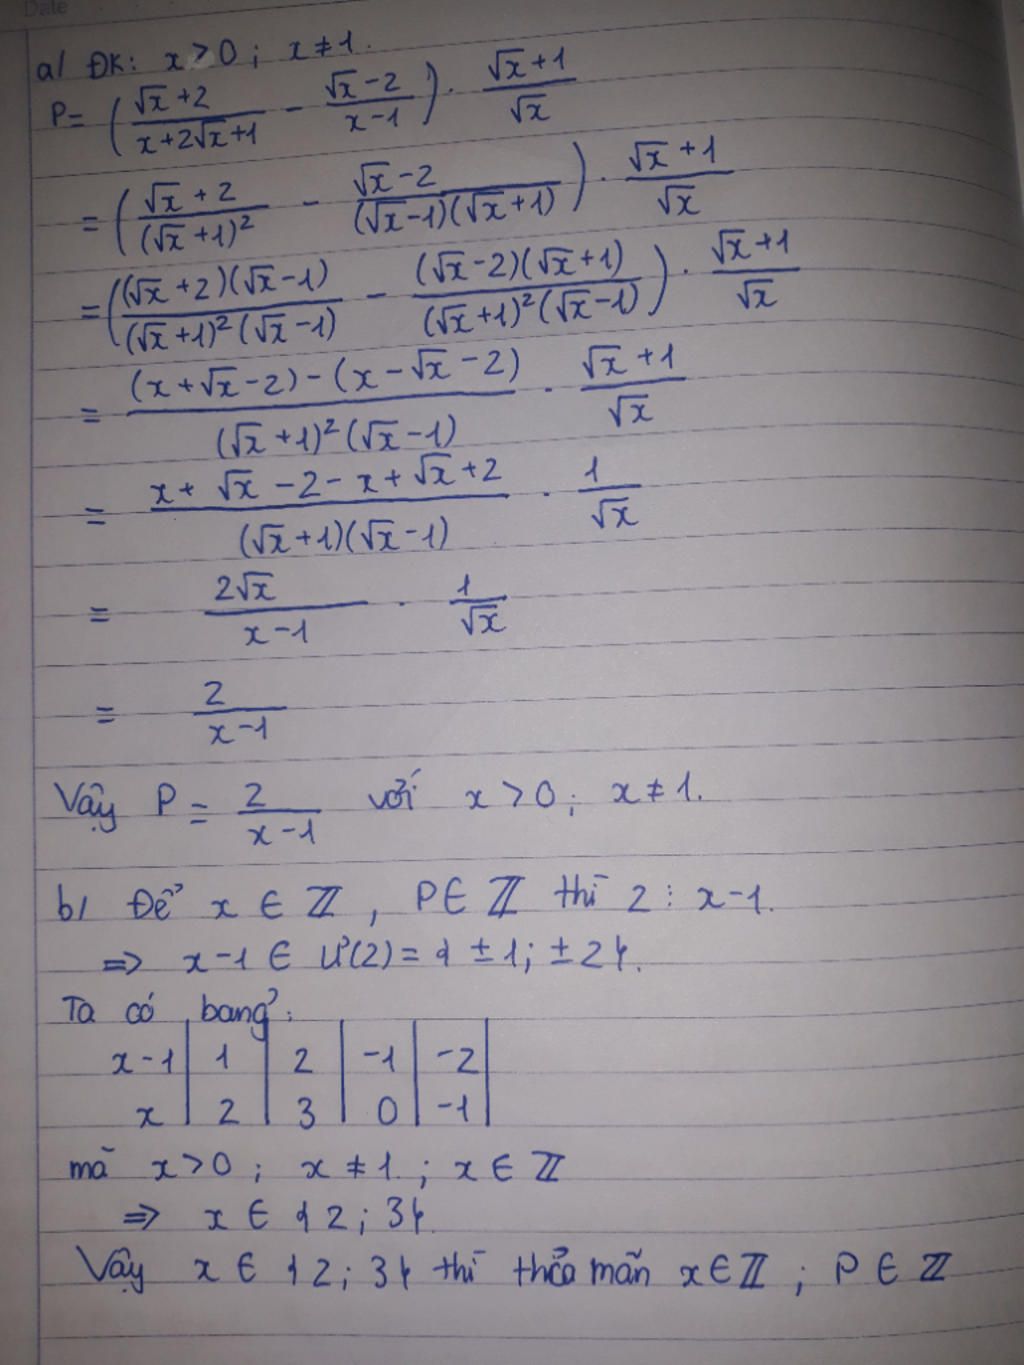 Date
a/ ĐK: x > 0 ; x ≠ 1.
P = ( (√x + 2)/(x + 2√x + 1) - (√x - 2)/(x - 1) ) . (√x + 1)/√x
= ( (√x + 2)/(√x + 1)² - (√x - 2)/((√x - 1)(√x + 1)) ) . (√x + 1)/√x
= ( ((√x + 2)(√x - 1))/((√x + 1)²(√x - 1)) - ((√x - 2)(√x + 1))/((√x + 1)²(√x - 1)) ) . (√x + 1)/√x
= ((x + √x - 2) - (x - √x - 2))/((√x + 1)²(√x - 1)) . (√x + 1)/√x
= (x + √x - 2 - x + √x + 2)/((√x + 1)(√x - 1)) . 1/√x
= 2√x/(x - 1) . 1/√x
= 2/(x - 1)
Vậy P = 2/(x - 1) với x > 0 ; x ≠ 1.
b/ Để x ∈ ℤ , P ∈ ℤ thì 2 ⋮ x - 1.
⇒ x - 1 ∈ Ư(2) = {± 1; ± 2}.
Ta có bảng:
x - 1 | 1 | 2 | -1 | -2 |
x | 2 | 3 | 0 | -1 |
mà x > 0 ; x ≠ 1. ; x ∈ ℤ
⇒ x ∈ {2 ; 3}.
Vậy x ∈ {2 ; 3} thì thỏa mãn x ∈ ℤ ; P ∈ ℤ